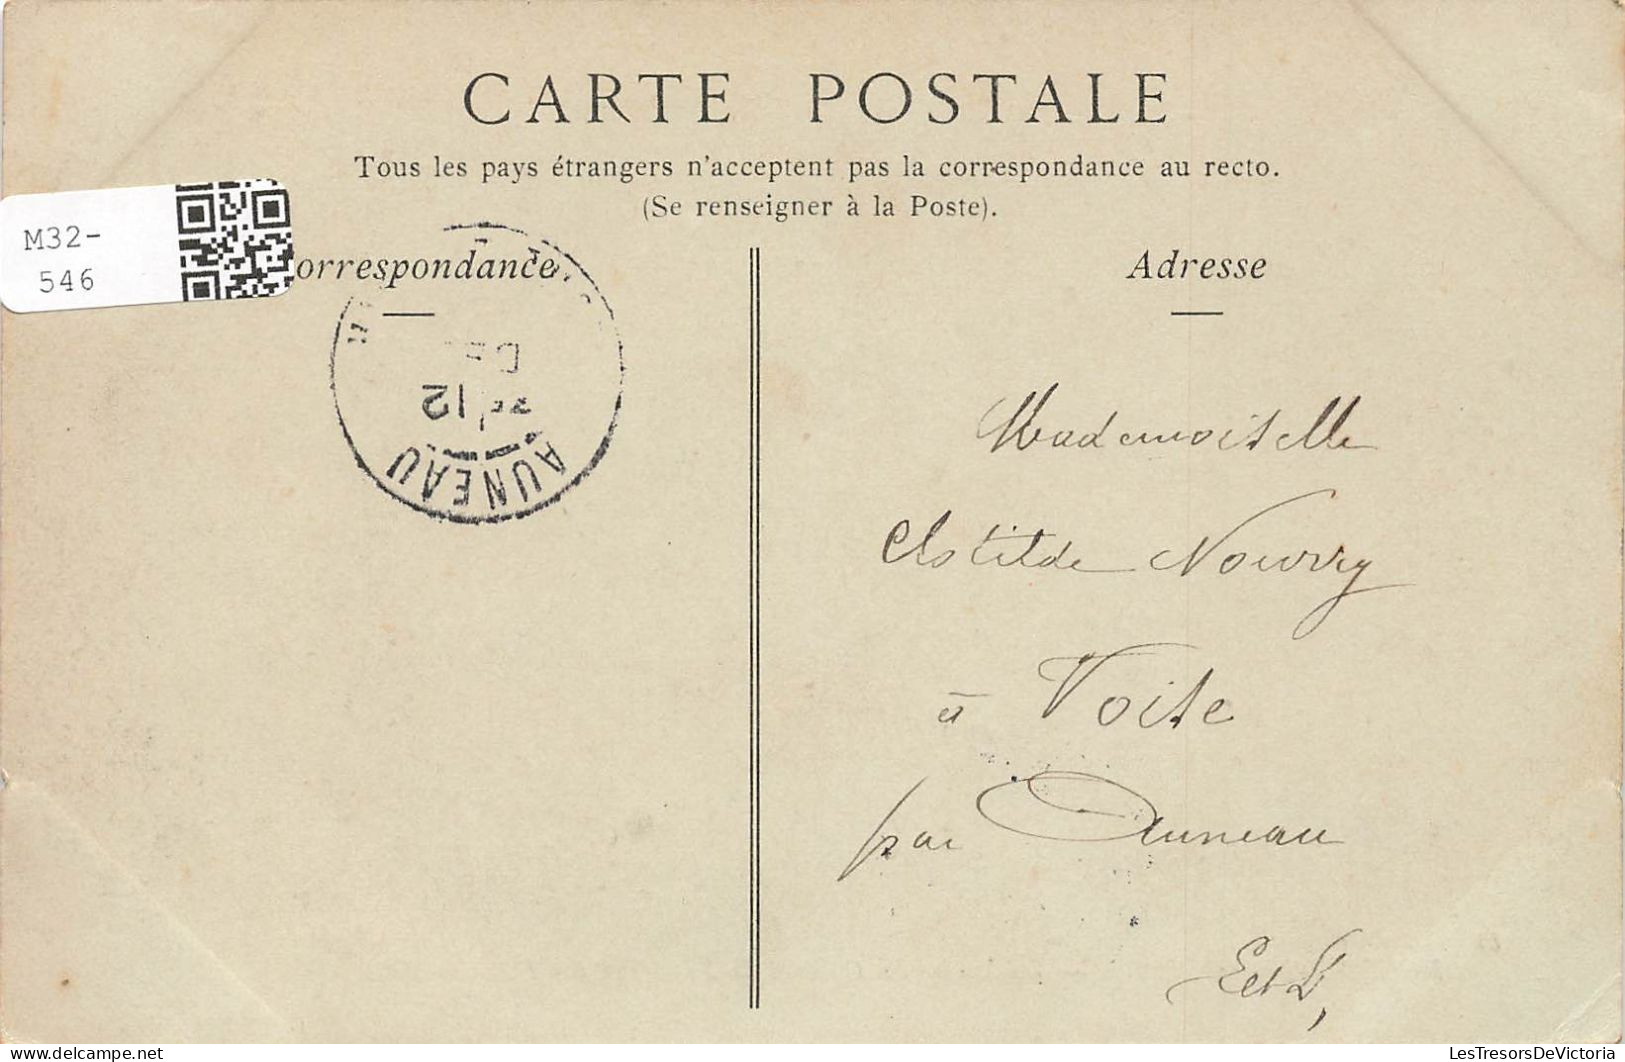 CARTE POSTALE
Tous les pays étrangers n'acceptent pas la correspondance au recto.
(Se renseigner à la Poste).
M32-
546
orrespondance
Adresse
12
AUNEAU
Mademoiselle
Clotilde Nourry
à Voise
par Auneau
E et L,
delcampe.net
LesTresorsDeVictoria